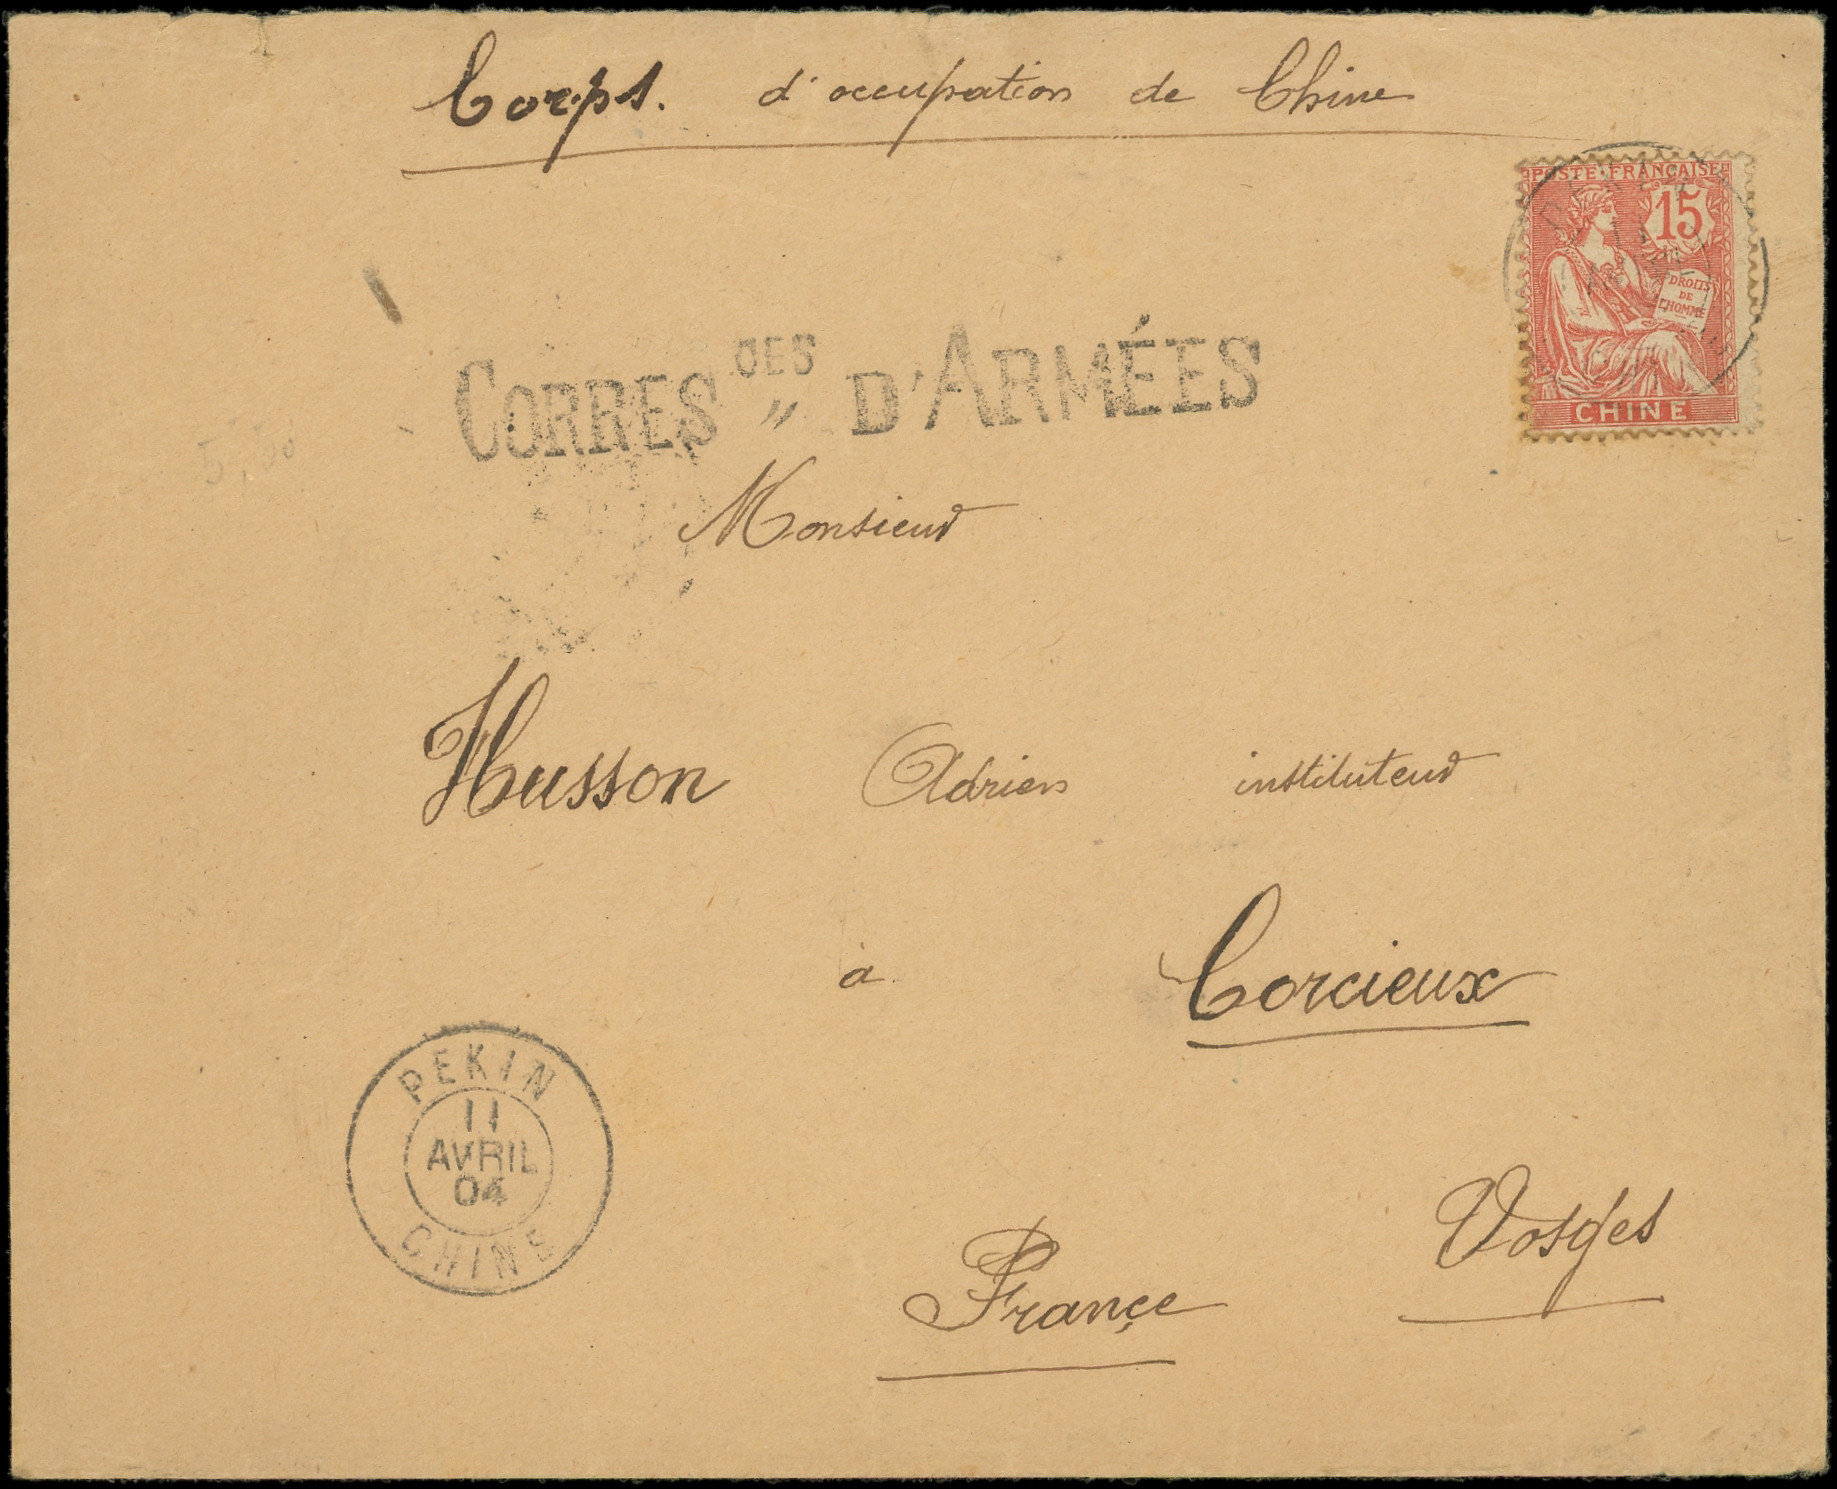 Corps. d'occupation de Chine
POSTE FRANÇAISE
15
DROITS
DE
L'HOMME
CHINE
CORRES DES " D'ARMÉES
Monsieur
Husson Adrien instituteur
à Corcieux
PEKIN
11
AVRIL
04
CHINE
Vosges
Françe